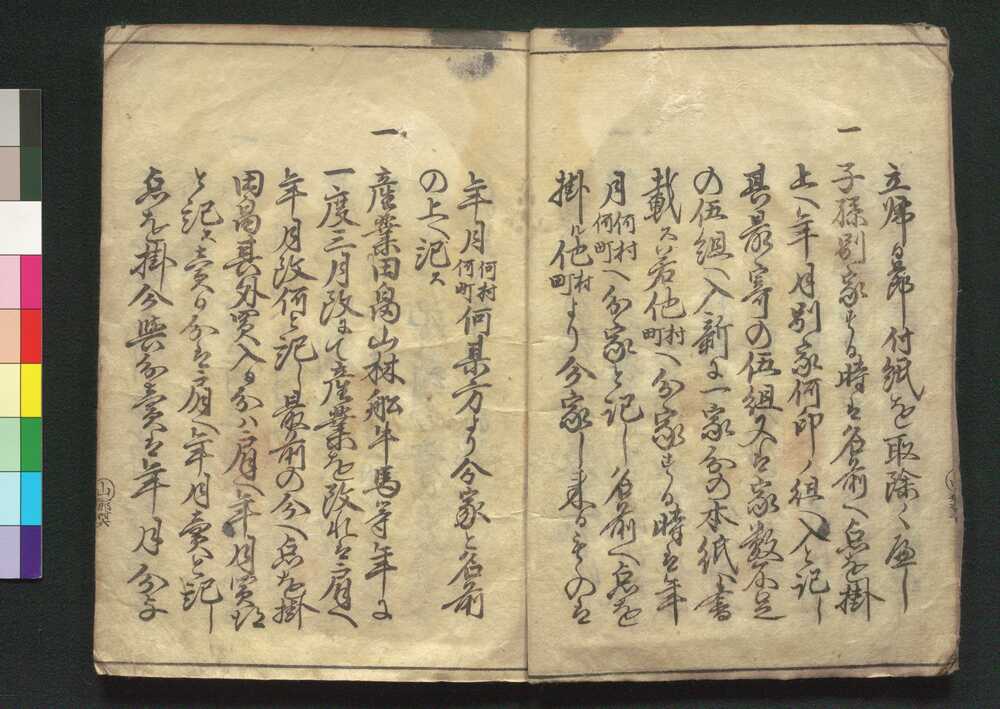 立帰る節付紙を取除くへし
一
子孫別家する時は名前へ点を掛
上へ年月別家何印ノ組へ入と記し
其最寄の伍組又は家数不足
の伍組へ入新に一家分の本紙へ書
載ス若他村町へ分家する時は年
月何村何町へ分家と記し名前へ点を
掛ル他村町より分家し来るものは
年月何村何町何某方より分家と名前
の上へ記ス
一
産業田畠山林船牛馬等年に
一度三月改にて産業を改れは肩へ
年月改何と記し最前の分へ点を掛
田畠其外買入る分ハ肩へ年月買
と記ス売る分は肩へ年月売と記し
点を掛分与分売は年月分与
山梨